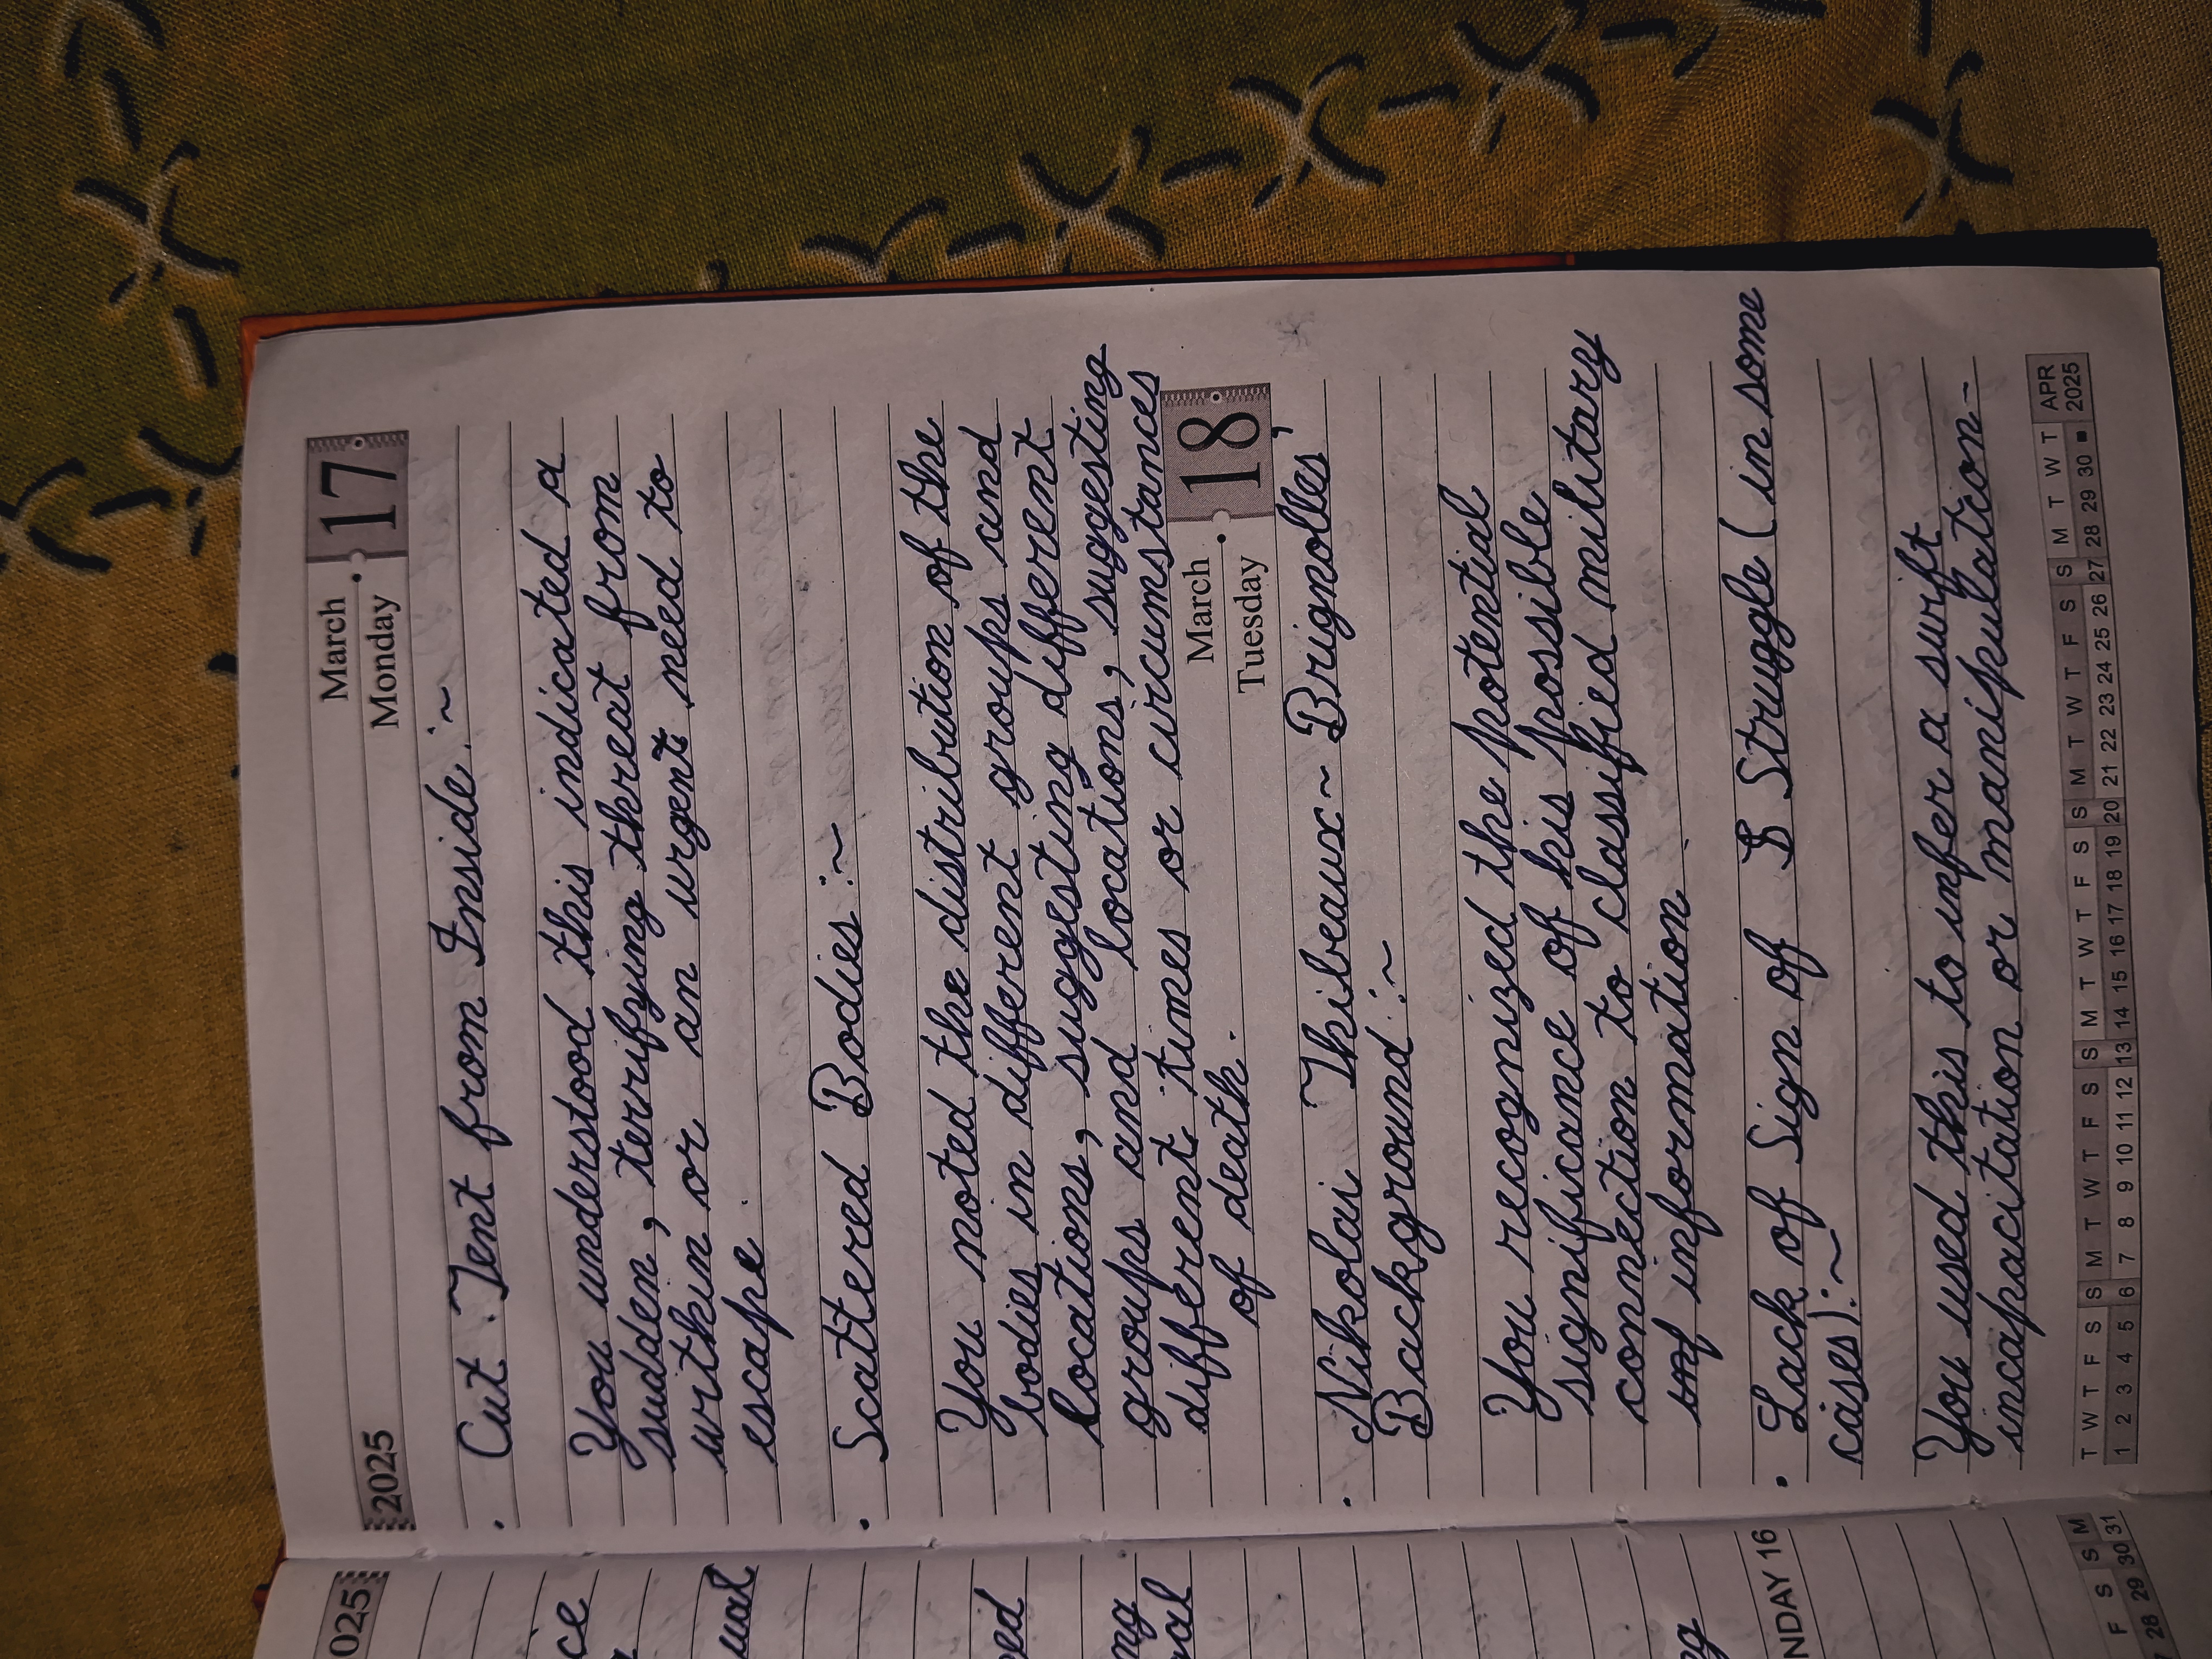 2025
March 17
Monday
• Cut Tent from Inside:~
You understood this indicated a
sudden, terrifying threat from
within or an urgent need to
escape.
• Scattered Bodies:~
You noted the distribution of the
bodies in different groups and
locations, suggesting different
groups and locations, suggesting
different times or circumstances
of death.
March 18
Tuesday
• Nikolai Thibeaux~Brignolles'
Background:~
You recognized the potential
significance of his possible
connection to classified military
information.
• Lack of Sign of Struggle (in some
cases):~
You used this to infer a swift
incapacitation or manipulation-
T W T F S S M T W T F S S M T W T F S S M T W T F S S M T W T APR
1 2 3 4 5 6 7 8 9 10 11 12 13 14 15 16 17 18 19 20 21 22 23 24 25 26 27 28 29 30 ■ 2025
025
ce
ual
ed
ng
nal
ng
NDAY 16
F S S M
28 29 30 31